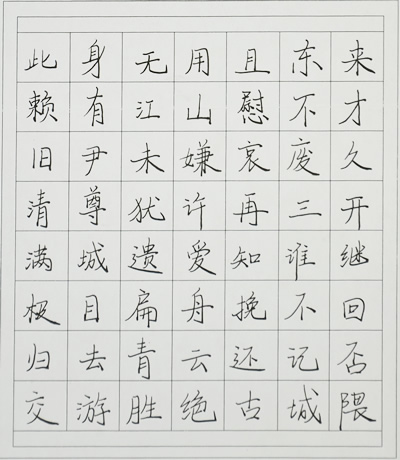 此身无用且东来
赖有江山慰不才
旧尹未嫌哀废久
清尊犹许再三开
满城遗爱知谁继
极目扁舟挽不回
归去青云还记否
交游胜绝古城隈